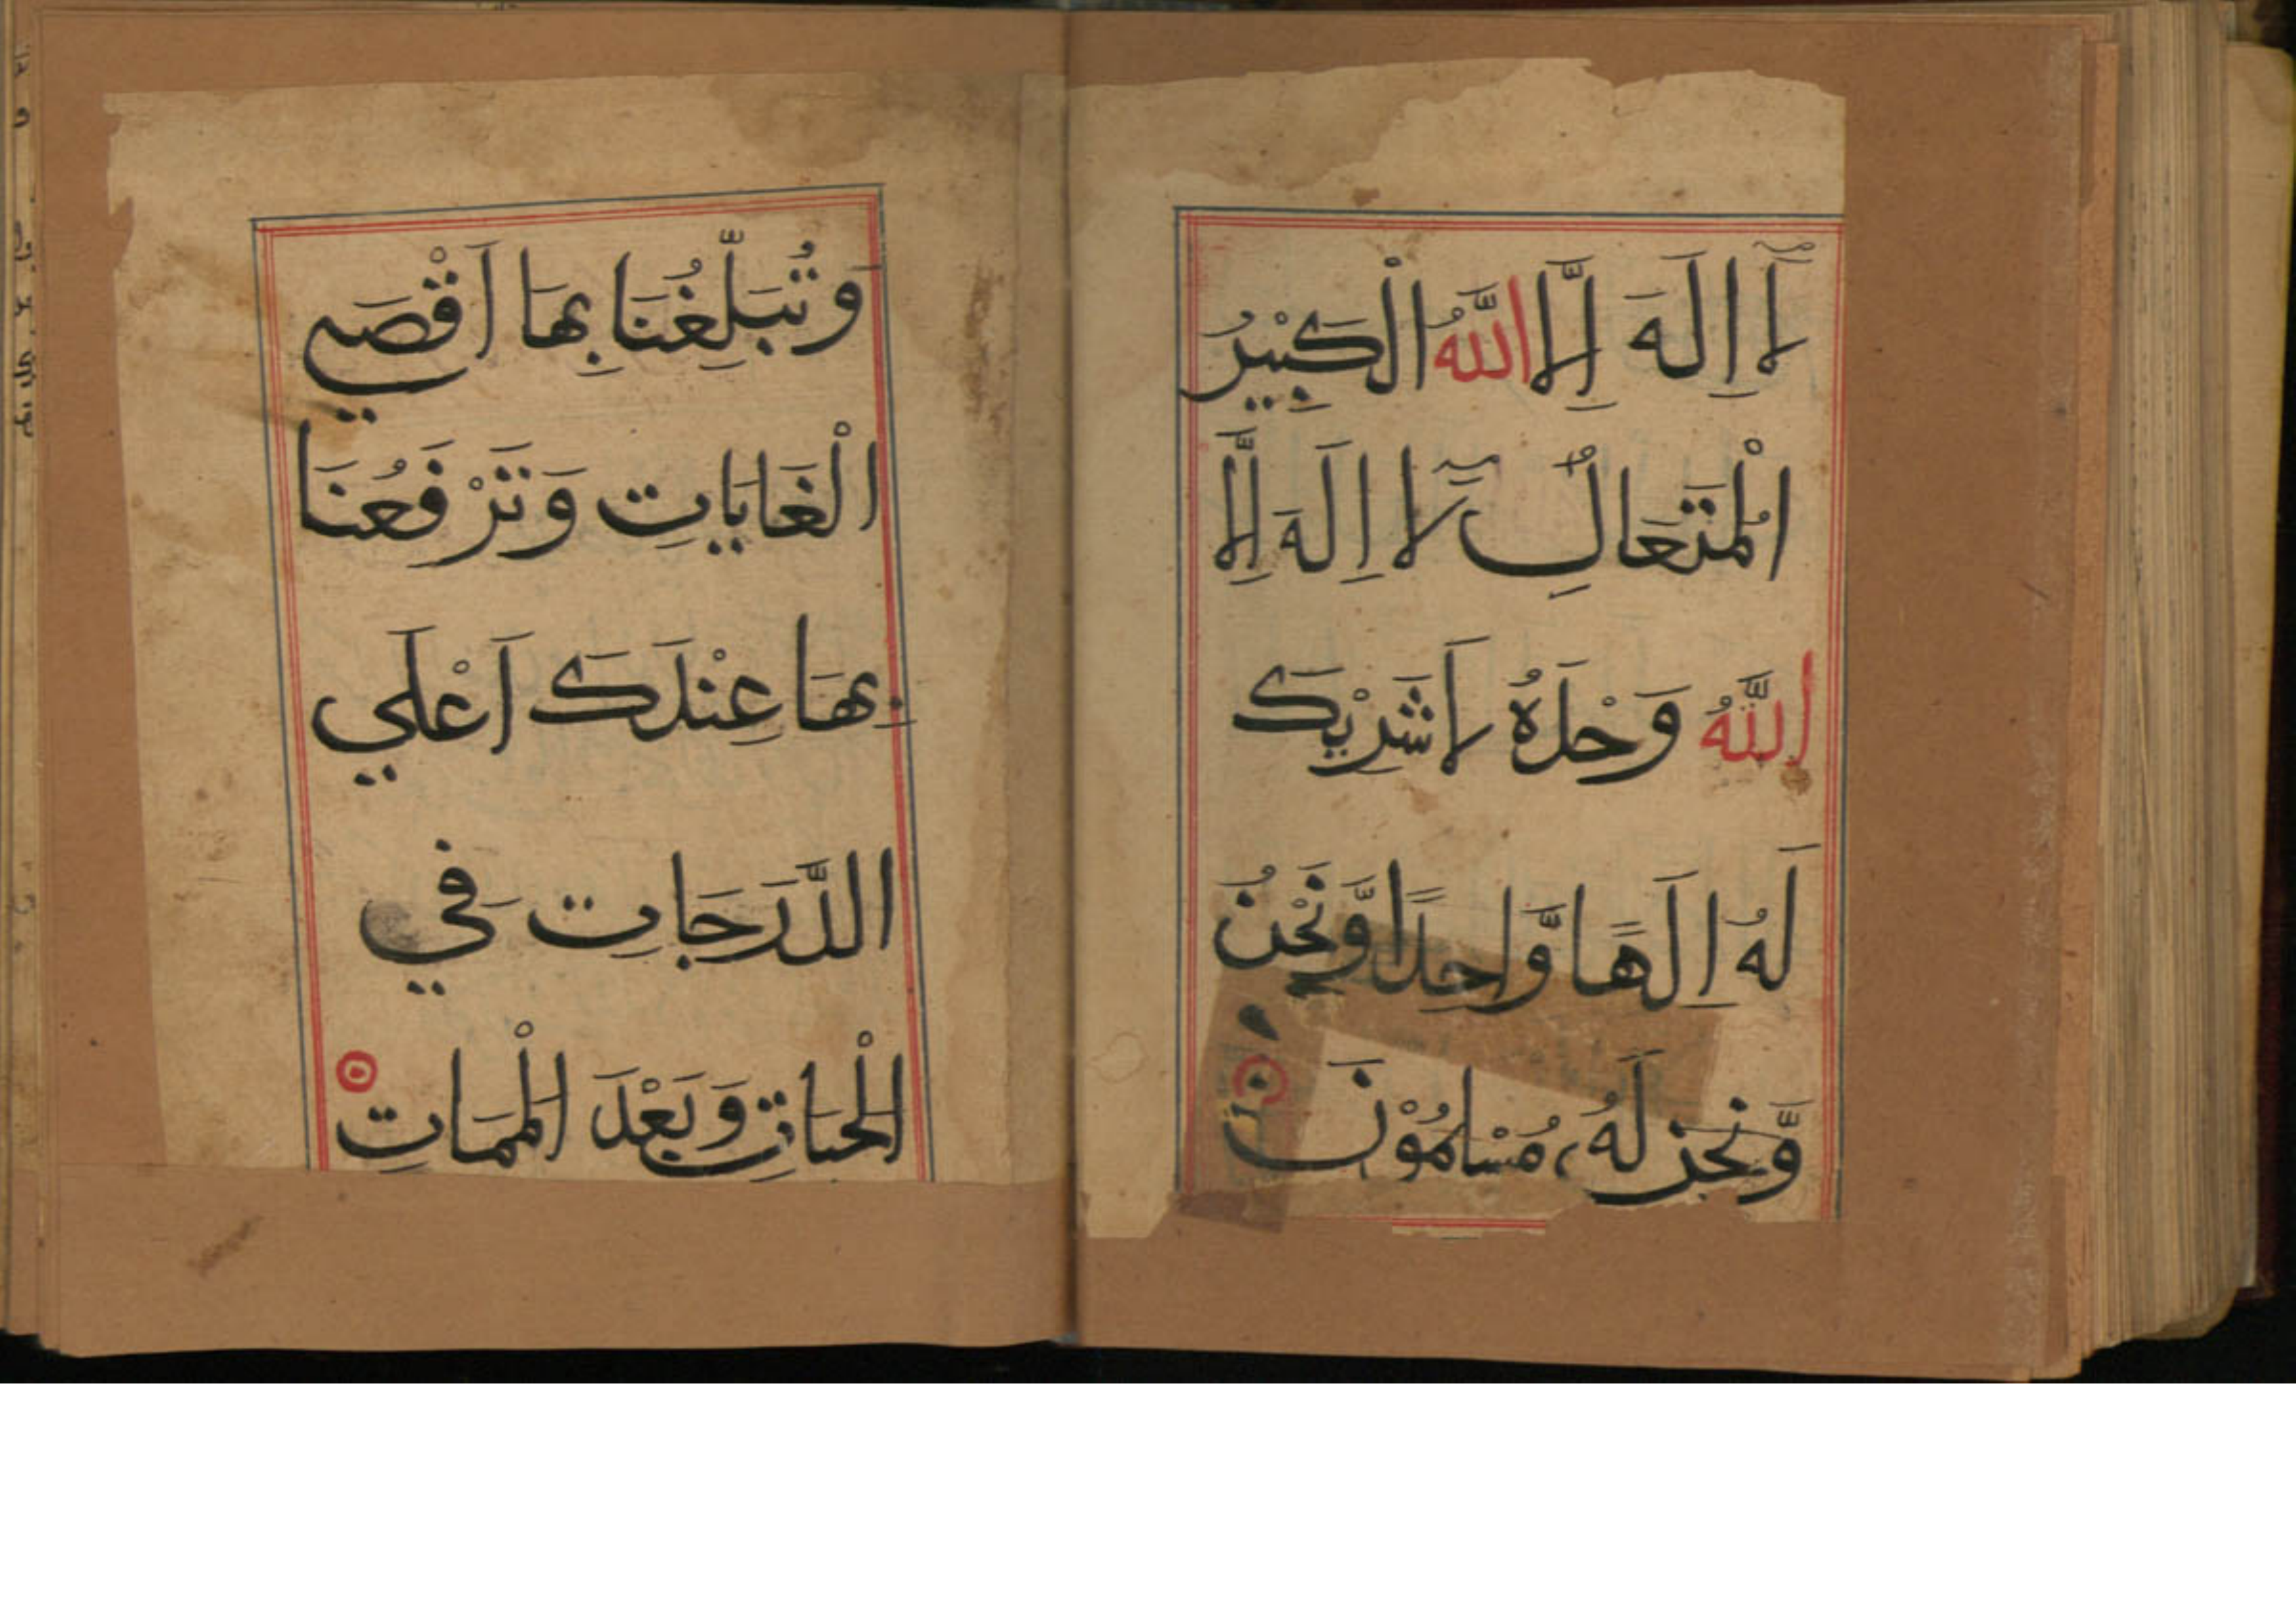 لَآ اِلَهَ اِلَّا اللَّهُ الْكَبِيْرُ
الْمُتَعَالُِ لَآ اِلَهَ اِلَّا
اللَّهُ وَحْدَهُ لَا شَرِيْكَ
لَهُ اِلَهًا وَّاحِدًا وَّنَحْنُ
وَّنَحْنُ لَهُ مُسْلِمُوْنَ
وَتُبَلِّغُنَا بِهَا اَقْصَي
الْغَايَاتِ وَتَرْفَعُنَا
بِهَا عِنْدَكَ اَعْلَي
الدَّرَجَاتِ فِي
الْحَيَاتِ وَبَعْدَ الْمَمَاتِ